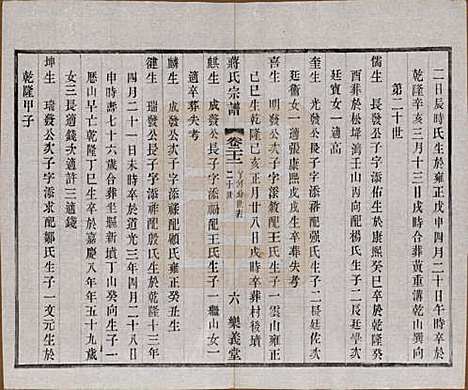 二日辰時氏生於雍正戊申四月二十日午時卒於
乾隆辛亥三月十三日戌時合葬黃重溝乾山巽向
第二十世
儒生　長發公次子字添佑生於康熙癸巳卒於乾隆己
酉葬於松埄鴻王山丙向配楊氏生子二長廷次
廷賓女一適高
奎生　光發公長子字添裕配强氏生子一長廷佐次
廷衛女一適張康熙戊戌生卒葬失考
喜生　明發公次子字添敎配王氏生子一雲山雍正
己巳生乾隆己亥正月廿八日戌時卒葬村後墳
蔣氏宗譜
卷之三
二十世
六　樂義堂
麒生　成發公長子字添配王氏生子一繼山女一
適卒葬失考
麟生　成發公次子字添祿配顧氏雍正癸丑生
健生　瑞發公長子字添祥配殷氏生於乾隆十三年
四月二十一日未時卒於道光三年四月二十日
申時壽七十六歲合葬坐壓新墳丁山癸向生子一
歷山早亡乾隆丁巳生卒於嘉慶八年年五十九歲
女三長適錢次適許三適錢
坤生　瑞發公次子字添求配鄒氏生子一文元生於
乾隆甲子